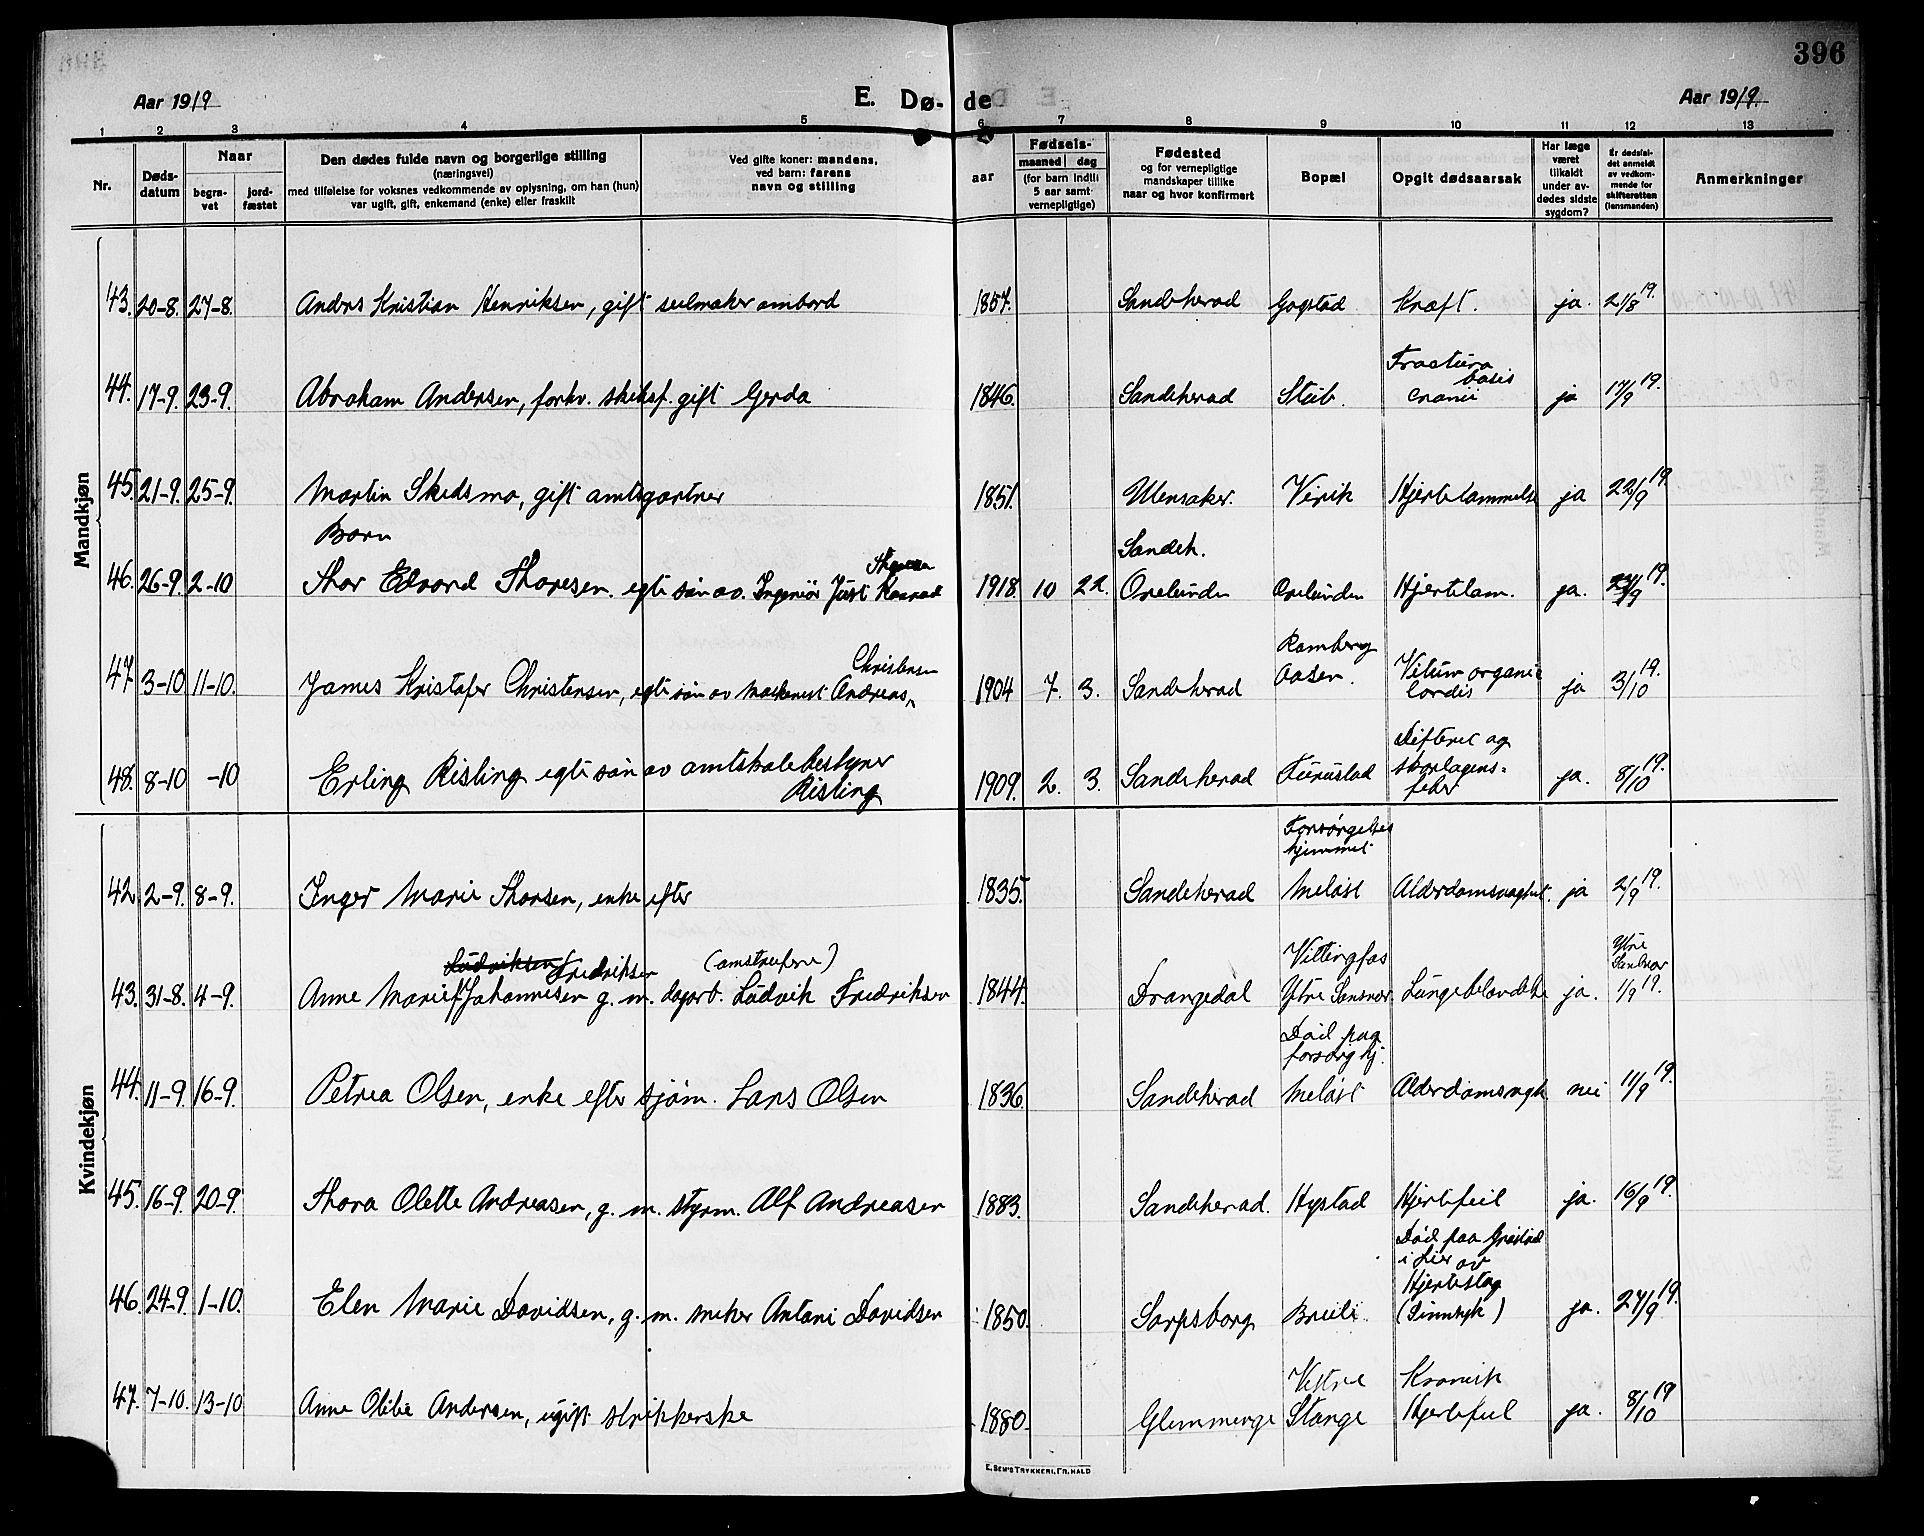 396
Aar 1919
E. Dø- de
Aar 1919.
1 2 3 4 5 6 7 8 9 10 11 12 13
Nr.
Døds-
datum
Naar
begra-
vet
jord-
fæstet
Den dødes fulde navn og borgerlige stilling
(næringsvei)
med tilføielse for voksnes vedkommende av oplysning, om han (hun)
var ugift, gift, enkemand (enke) eller fraskilt
Ved gifte koner: mandens,
ved barn: farens
navn og stilling
aar
Fødsels-
maaned dag
(for barn indtil
5 aar samt
vernepligtige)
Fødested
og for vernepligtige
mandskaper tillike
naar og hvor konfirmert
Bopæl
Opgit dødsaarsak
Har læge
været
tilkaldt
under av-
dødes sidste
sygdom?
Er dødsfal-
det anmeldt
av vedkom-
mende for
skifteretten
(lensmanden)
Anmerkninger
Mandkjøn
43. 20-8. 27-8. Andrs Kristian Henriksen, gift seilmaker ombord 1857. Sandeherad Gogstad Kræft. ja. 21/8 19.
Fractura
basis
44. 17-9. 23-9. Abraham Andersen, forhv. skibsf. gift Gerda 1846. Sandeherad Stub. cranii ja 17/9 19.
45. 21-9. 25-9. Martin Skedsmo, gift amtsgartner 1851. Ullensaker. Virik Hjertelammelse ja 22/9 19.
Barn Sandeh.
Thoresen
46. 26-9. 2-10 Thor Edvard Thoresen. egte søn av. Ingeniør Just Konrad 1918 10 22. Orelunden Orelunden Hjertelam. ja. 19.
Christensen Ramberg
47 3-10 11-10. James Kristofer Christensen, egte søn av maskinist Andreas 1904 7. 3. Sandeherad aasen. Vitium organic cordis ja 3/10 19.
Difterit og
48. 8-10 -10 Erling Risling egte søn av amtskolebestyrer 1909. 2. 3. Sandeherad Furustad skarlagens- ja. 8/10 19.
Risling feber
Kvindekjøn
Forsørgelses
hjemmet
42. 2-9. 8-9. Inger Marie Thorsen, enke efter 1835. Sandeherad Meløst Alderdomssvaghet. ja 2/9 19.
Ludviksen Fredriksen Vittingfos Ytre
Sandsvær
43. 31-8. 4-9. Anne Marie Johannesen g. m. dagarb. Ludvik Fredriksen 1844. Drangedal Ytre Lungebetændelse ja. 1/9 19.
Død paa
forsørg hj.
44. 11-9. 16-9. Petrea Olsen, enke efter sjøm. Lars Olsen 1836. Sandeherad Meløst nei 11/9 19.
45. 16-9. 20-9. Thora Olette Andreasen, g. m. styrm. Alf Andreasen 1883. Sandeherad. Hystad Hjertefeil ja. 16/9 19.
Død paa
i Lier av
Hjerteslag
46. 24-9. 1-10. Elen Marie Davidsen, g. m. Antoni Davidsen 1850. Sarpsborg (Sinnsyk) ja. 24/9 19.
Vestre Kronisk
47. 7-10. 13-10 Anne Olibie Andersen, ugift strikkerske 1880. Glemminge Stange Hjertefeil ja. 8/10 19
E. Sem's Trykkeri, Fr.hald